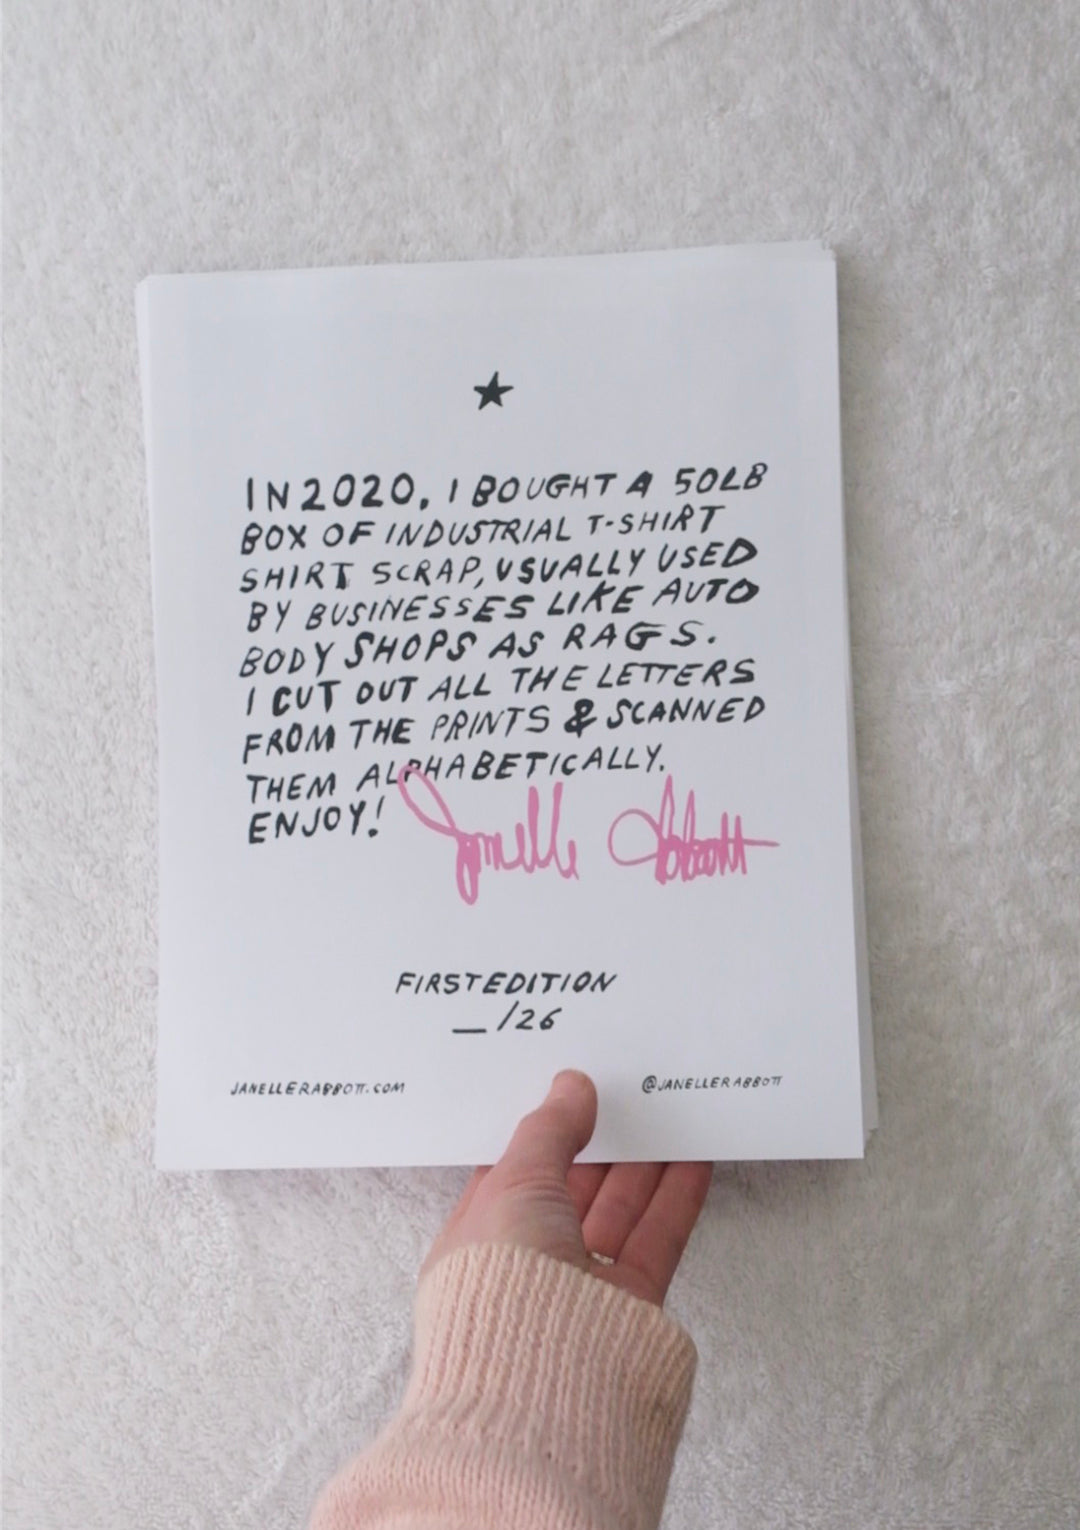 IN 2020, I BOUGHT A 50LB
BOX OF INDUSTRIAL T-SHIRT
SHIRT SCRAP, USUALLY USED
BY BUSINESSES LIKE AUTO
BODY SHOPS AS RAGS.
I CUT OUT ALL THE LETTERS
FROM THE PRINTS & SCANNED
THEM ALPHABETICALLY.
ENJOY!
Janelle Abbott
FIRST EDITION
__/26
JANELLERABBOTT.COM
@JANELLERABBOTT